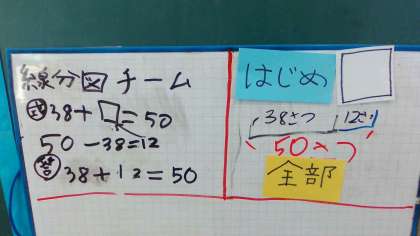 線分図チーム
式38+□=50
50-38=12
答38+12=50
はじめ
38さつ 12さつ
50さつ
全部